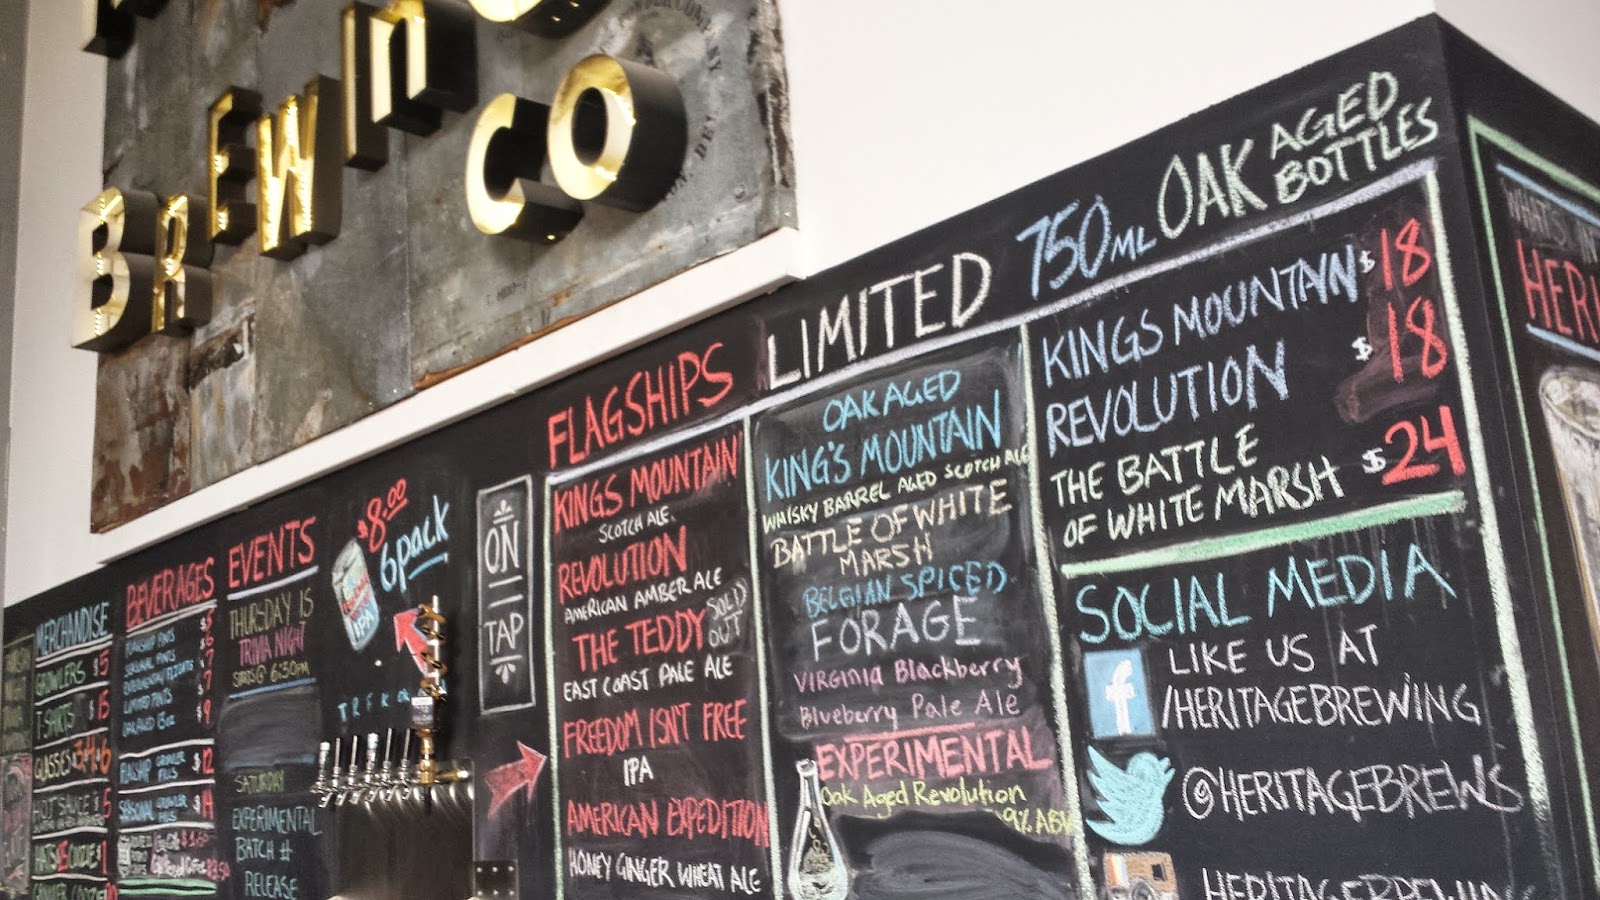 BREWING
CO
MERCHANDISE
GROWLERS $5
T-SHIRTS $15
GLASSES
HOT SAUCE $5
HATS
BEVERAGES
FLAGSHIP PINTS $5
SEASONAL PINTS $6
$7
LIMITED PINTS $7
$9
FLAGSHIP GROWLER
FILLS $12
SEASONAL GROWLER
FILLS $14
EVENTS
THURSDAY IS
TRIVIA NIGHT
STARTS @ 6:30PM
SATURDAY
EXPERIMENTAL
BATCH #
RELEASE
$8.00
6pack
IPA
ON
TAP
FLAGSHIPS
KINGS MOUNTAIN
SCOTCH ALE
REVOLUTION
AMERICAN AMBER ALE
THE TEDDY SOLD OUT
EAST COAST PALE ALE
FREEDOM ISN'T FREE
IPA
AMERICAN EXPEDITION
HONEY GINGER WHEAT ALE
LIMITED
OAK AGED
KING'S MOUNTAIN
WHISKY BARREL AGED SCOTCH ALE
BATTLE OF WHITE
MARSH
BELGIAN SPICED
FORAGE
VIRGINIA BLACKBERRY
Blueberry Pale Ale
EXPERIMENTAL
Oak Aged Revolution
9% ABV
750ML OAK AGED BOTTLES
KINGS MOUNTAIN $18
REVOLUTION $18
THE BATTLE
OF WHITE MARSH $24
SOCIAL MEDIA
f LIKE US AT
/HERITAGEBREWING
@HERITAGEBREWS
HERITAGEBREWING
WHAT'S IN
HERI